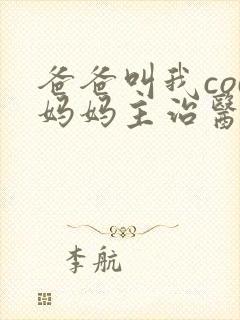 爸爸叫我co
妈妈主治醫
李航